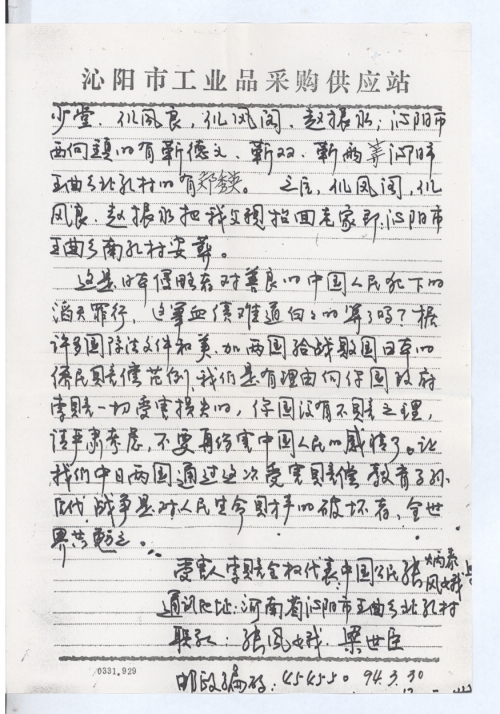 沁阳市工业品采购供应站
少堂、仉凤良，仉凤阁、赵振水；沁阳市
西向镇的有靳德义、靳双、靳的等沁阳市
王曲乡北孔村的有郑。之后，仉凤阁，仉
风良、赵振水把我父亲抬回老家即：沁阳市
王曲乡南孔村安葬。
这是日本侵略者对善良的中国人民犯下的
滔天罪行，这笔血债难道白白的算了吗？根据
许多国际法文件和美、加两国给战败国日本的
侨民赔偿范例，我们是有理由向你国政府
索赔一切受害损失的，你国没有不赔之理，
请严肃考虑，不要再伤害中国人民的感情了。让
我们中日两国通过这次受害赔偿教育子孙
后代，战争是对人民生命财产的破坏者，全世
界共勉之。
受害人索赔全权代表中国公民张炳泰
通讯地址：河南省沁阳市王曲乡北孔村
联机：张凤娥、梁世臣
0331.929
邮政编码：454550 94.3.30